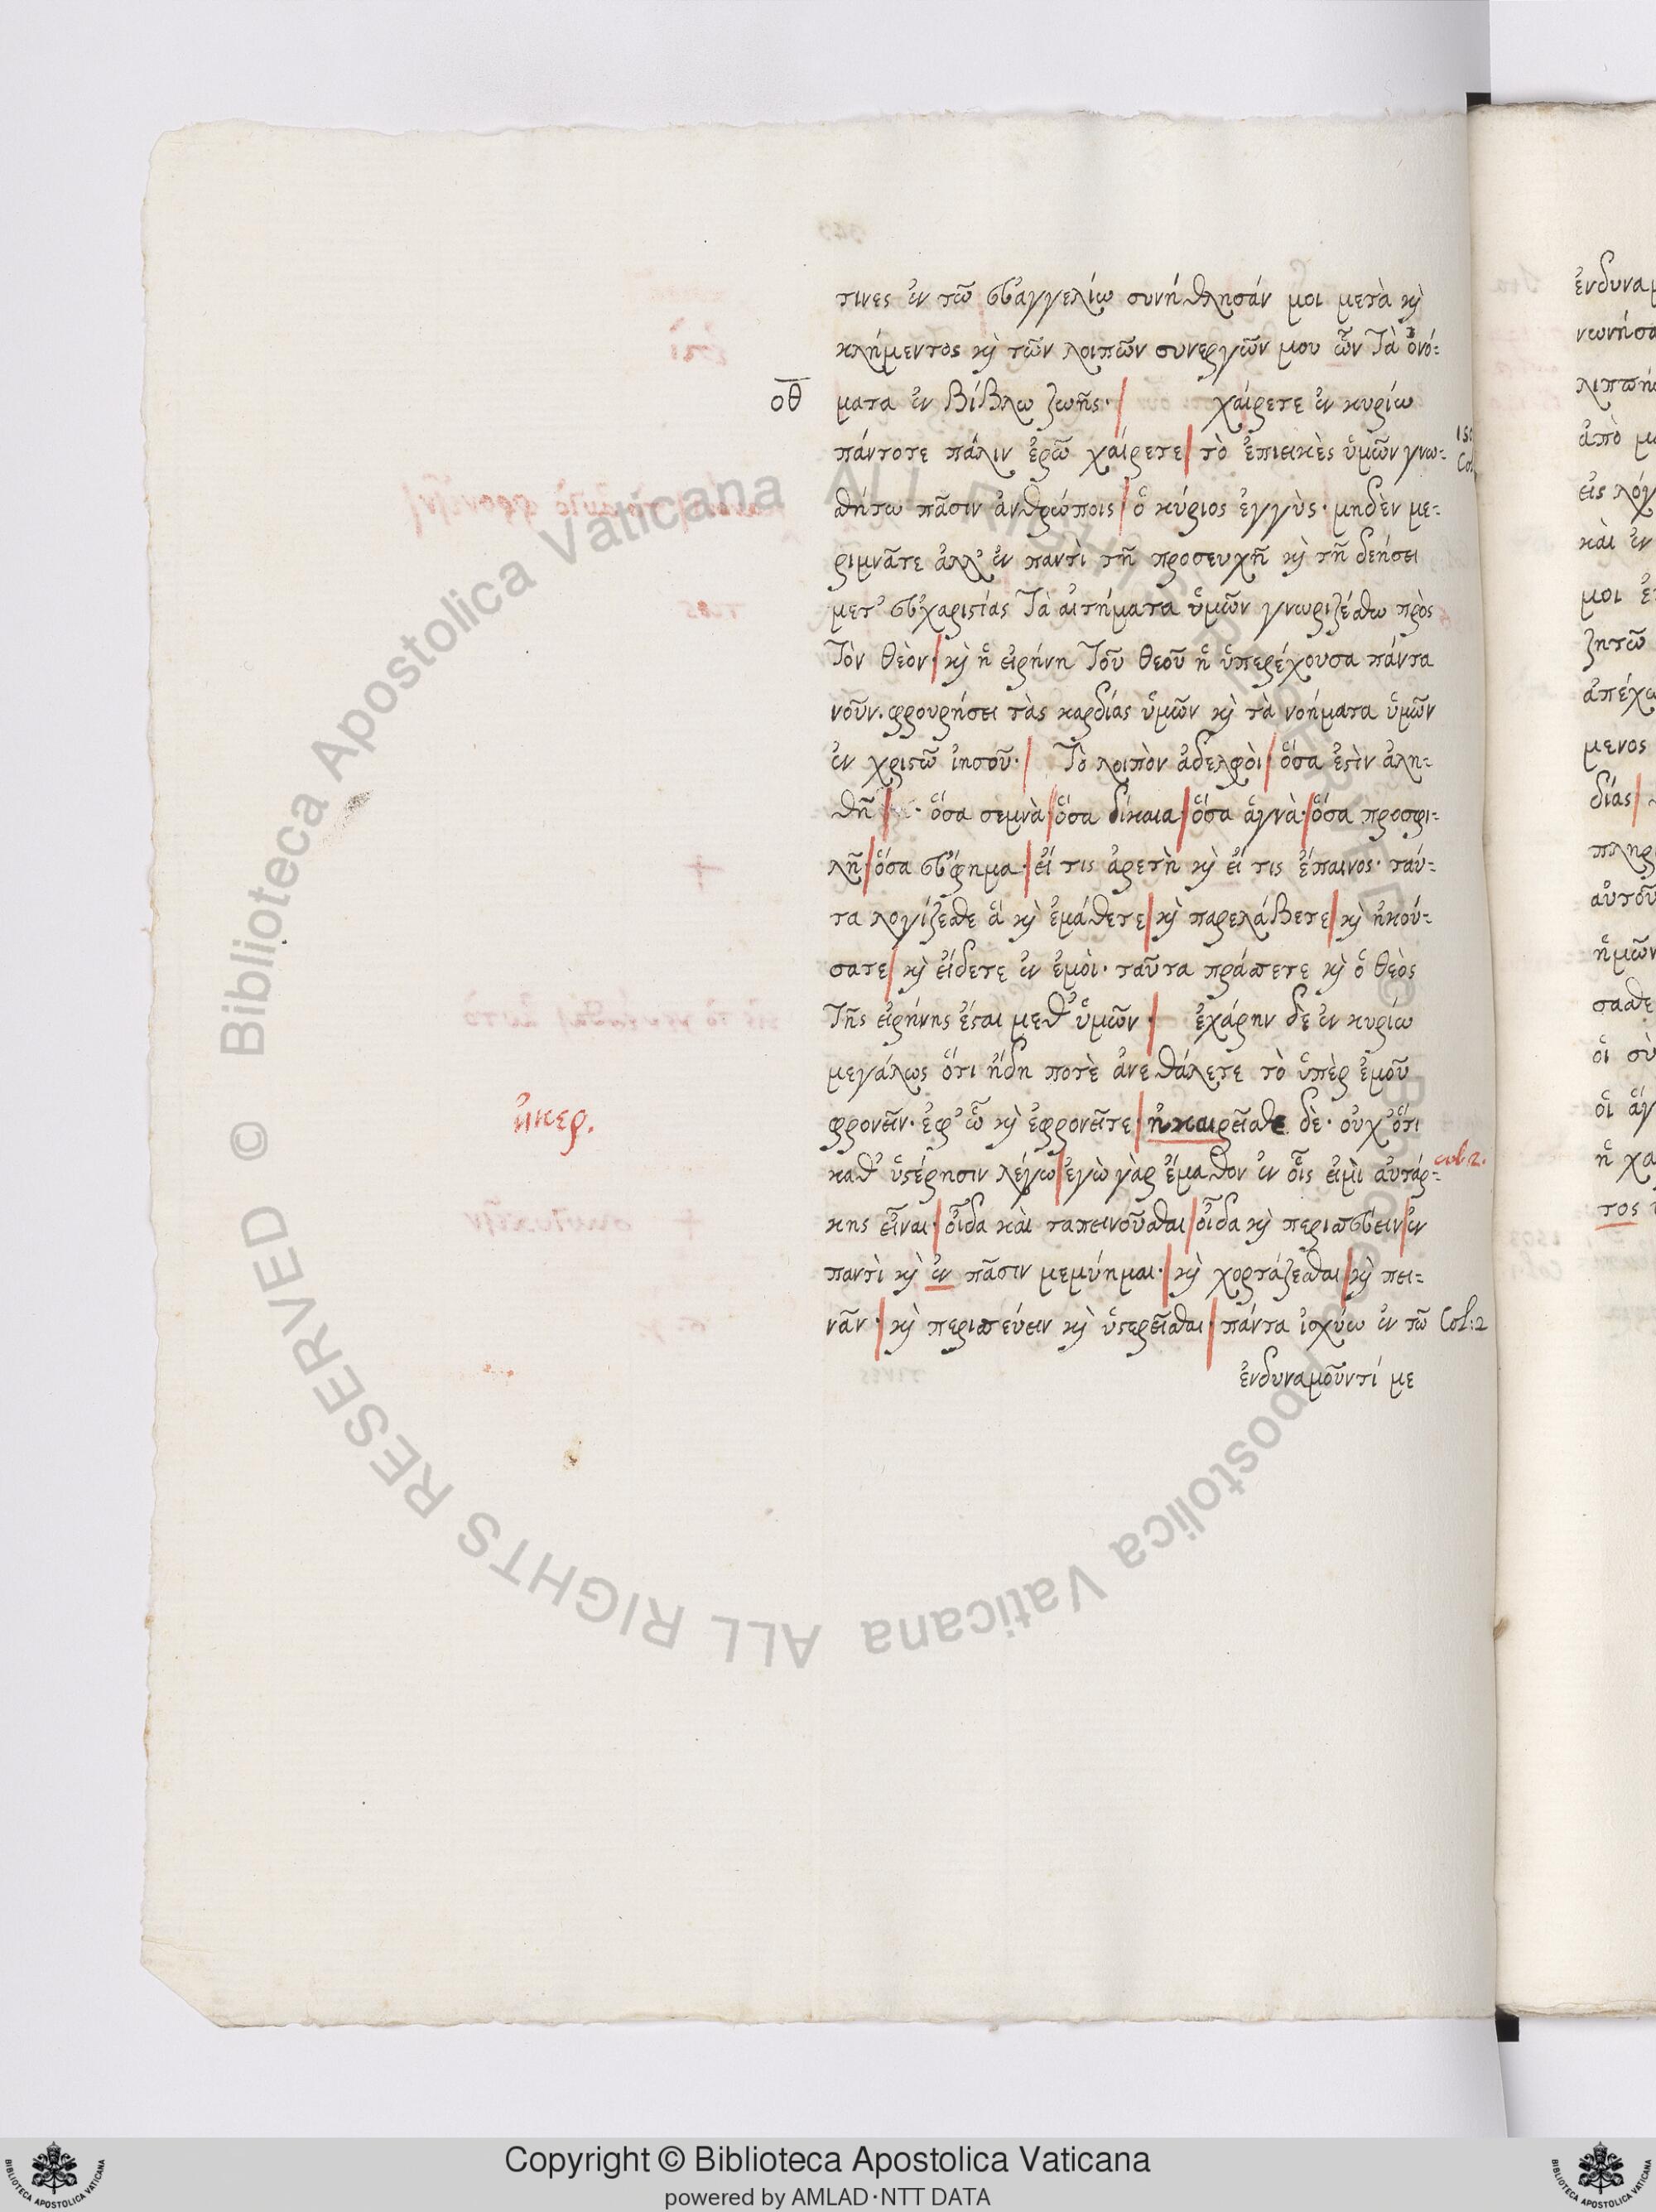 τινες ἐν τῶ εὐαγγελίω συνήθλησάν μοι μετὰ κ̀
κλήμεντος κ̀ τῶν λοιπῶν συνεργῶν μου ὧν τὰ ὀνό-
οθ ματα ἐν βίβλω ζωῆς· χαίρετε ἐν κυρίω
πάντοτε πάλιν ἐρῶ χαίρετε τὸ ἐπιεικὲς ὑμῶν γνω-
σθήτω πᾶσιν ἀνθρώποις ὁ κύριος ἐγγὺς· μηδὲν με-
ριμνᾶτε ἀλλ' ἐν παντὶ τῆ προσευχῆ κ̀ τῆ δεήσει
μετ' εὐχαριστίας τὰ αἰτήματα ὑμῶν γνωριζέσθω πρὸς
τὸν θεὸν· κ̀ ἡ εἰρήνη τοῦ θεοῦ ἡ ὑπερέχουσα πάντα
νοῦν· φρουρήσει τὰς καρδίας ὑμῶν κ̀ τὰ νοήματα ὑμῶν
ἐν χριστῶ ἰησοῦ· Τὸ λοιπὸν ἀδελφοὶ ὅσα ἐστὶν ἀλη-
θῆ · ὅσα σεμνὰ ὅσα δίκαια· ὅσα ἁγνὰ· ὅσα προσφι-
λῆ· ὅσα εὔφημα· εἴ τις ἀρετὴ κ̀ εἴ τις ἔπαινος· ταύ-
τα λογίζεσθε ἃ κ̀ ἐμάθετε κ̀ παρελάβετε κ̀ ἠκού-
σατε κ̀ εἴδετε ἐν ἐμοὶ· ταῦτα πράττετε κ̀ ὁ θεὸς
τῆς εἰρήνης ἔσται μεθ' ὑμῶν· ἐχάρην δὲ ἐν κυρίω
μεγάλως ὅτι ἤδη ποτὲ ἀνεθάλετε τὸ ὑπὲρ ἐμοῦ
ἠκερ. φρονεῖν· ἐφ' ᾧ κ̀ ἐφρονεῖτε· ἠκαιρεῖσθε δὲ· οὐχ' ὅτι
καθ' ὑστέρησιν λέγω ἐγὼ γὰρ ἔμαθον ἐν οἷς εἰμὶ αὐτάρ- col:2.
κης εἶναι· οἶδα καὶ ταπεινοῦσθαι οἶδα κ̀ περισσεύειν ἐν
παντὶ κ̀ ἐν πᾶσιν μεμύημαι· κ̀ χορτάζεσθαι κ̀ πει-
νᾶν· κ̀ περισσεύειν κ̀ ὑστερεῖσθαι· πάντα ἰσχύω ἐν τῶ Col:2
ἐνδυναμοῦντί με
Copyright © Biblioteca Apostolica Vaticana
powered by AMLAD·NTT DATA